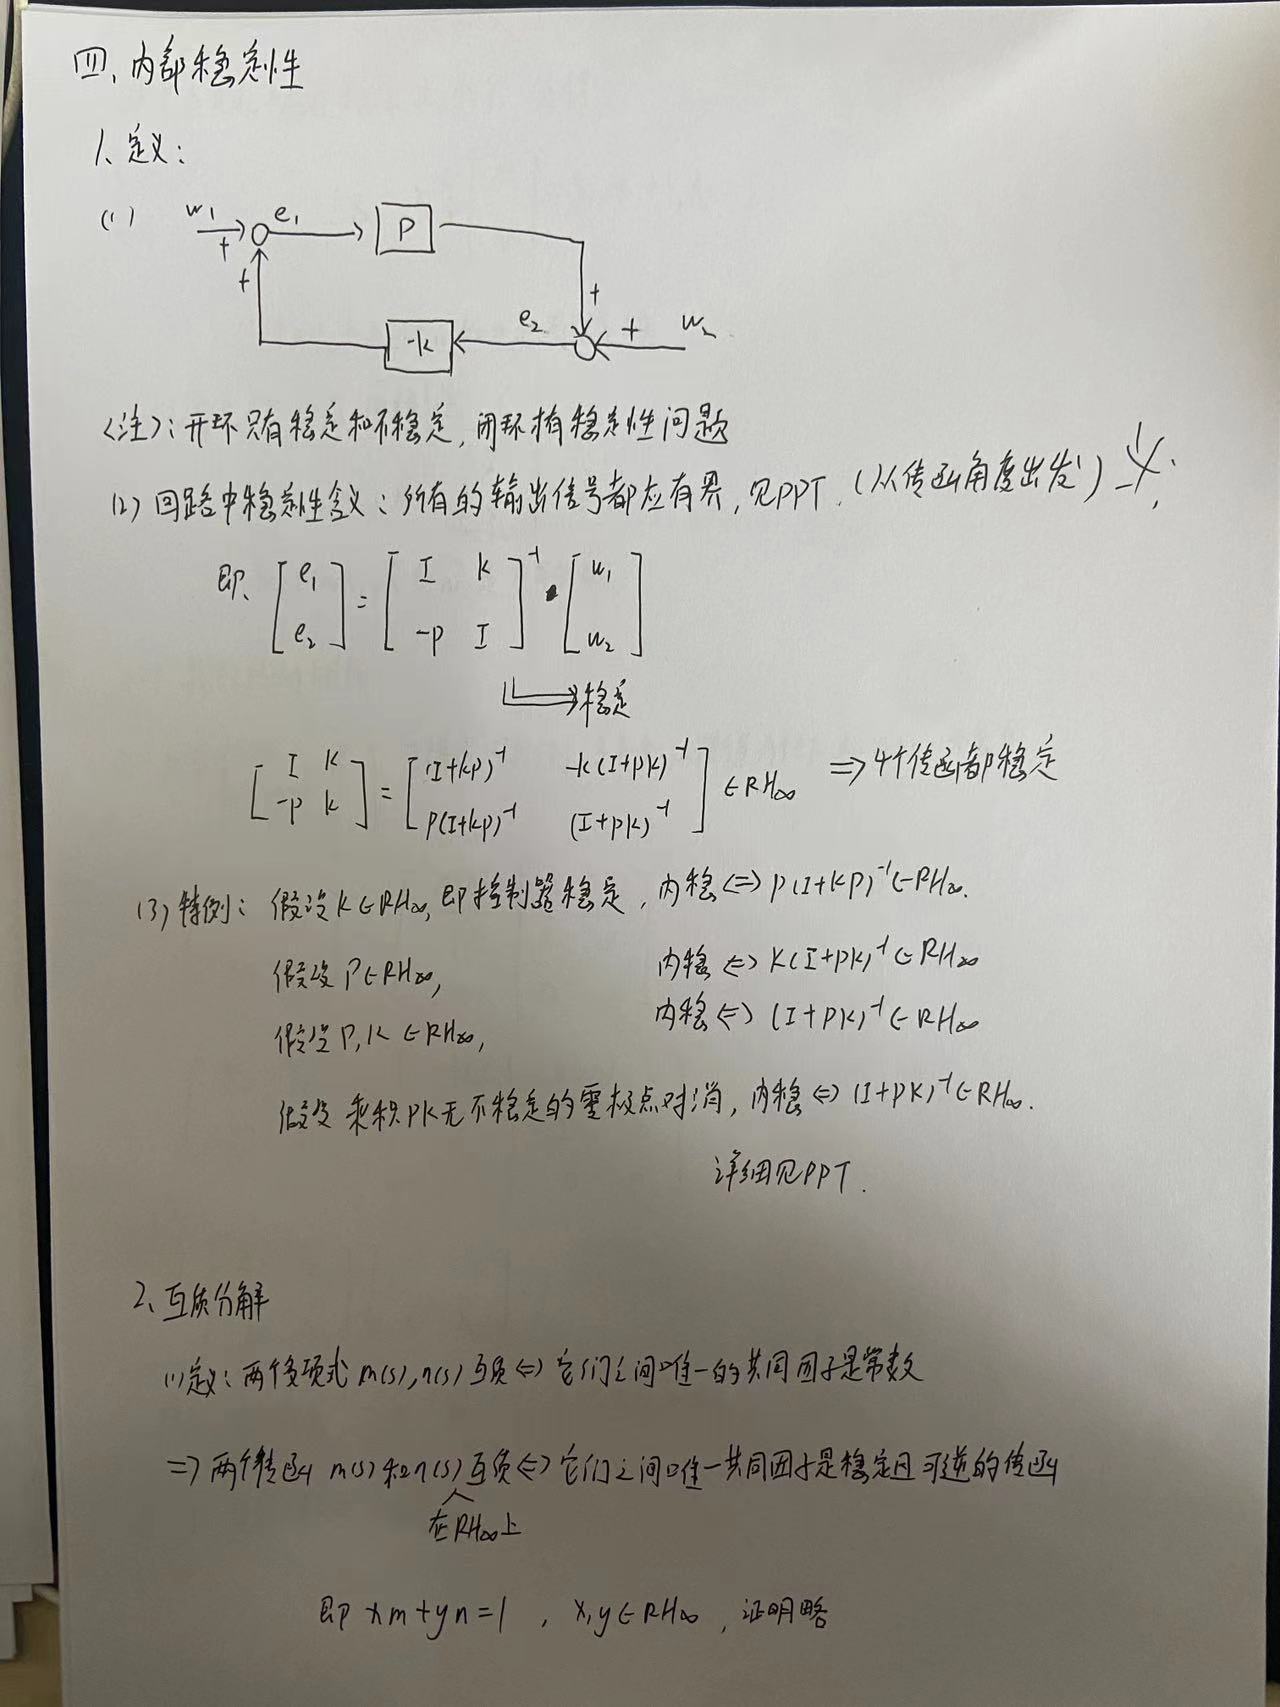 四、内部稳定性
1、定义：
(1) w₁ + e₁ P
+ +
-k e₂ + w₂
<注>：开环只有稳定和不稳定，闭环有稳定性问题
(2) 回路中稳定性含义：所有的输出信号都应有界，见PPT.（从传函角度出发）
即、[e₁ e₂] = [I k -P I]⁻¹ · [w₁ w₂]
⇒稳定
[I k -P k] = [(I+kP)⁻¹ -k(I+Pk)⁻¹ P(I+kP)⁻¹ (I+Pk)⁻¹] ∈RH∞ ⇒ 4个传函都稳定
(3) 特例：假设k∈RH∞, 即控制器稳定，内稳⇔P(I+kP)⁻¹∈RH∞.
假设P∈RH∞, 内稳⇔k(I+Pk)⁻¹∈RH∞
假设P,k∈RH∞, 内稳⇔(I+Pk)⁻¹∈RH∞
假设乘积Pk无不稳定的零极点对消，内稳⇔(I+Pk)⁻¹∈RH∞.
详细见PPT.
2、互质分解
(1)定义：两个多项式m(s),n(s)互质⇔它们之间唯一的共同因子是常数
⇒两个传函m(s)和n(s)互质⇔它们之间唯一共同因子是稳定且可逆的传函
在RH∞上
即 xm+yn=1，x,y∈RH∞，证明略